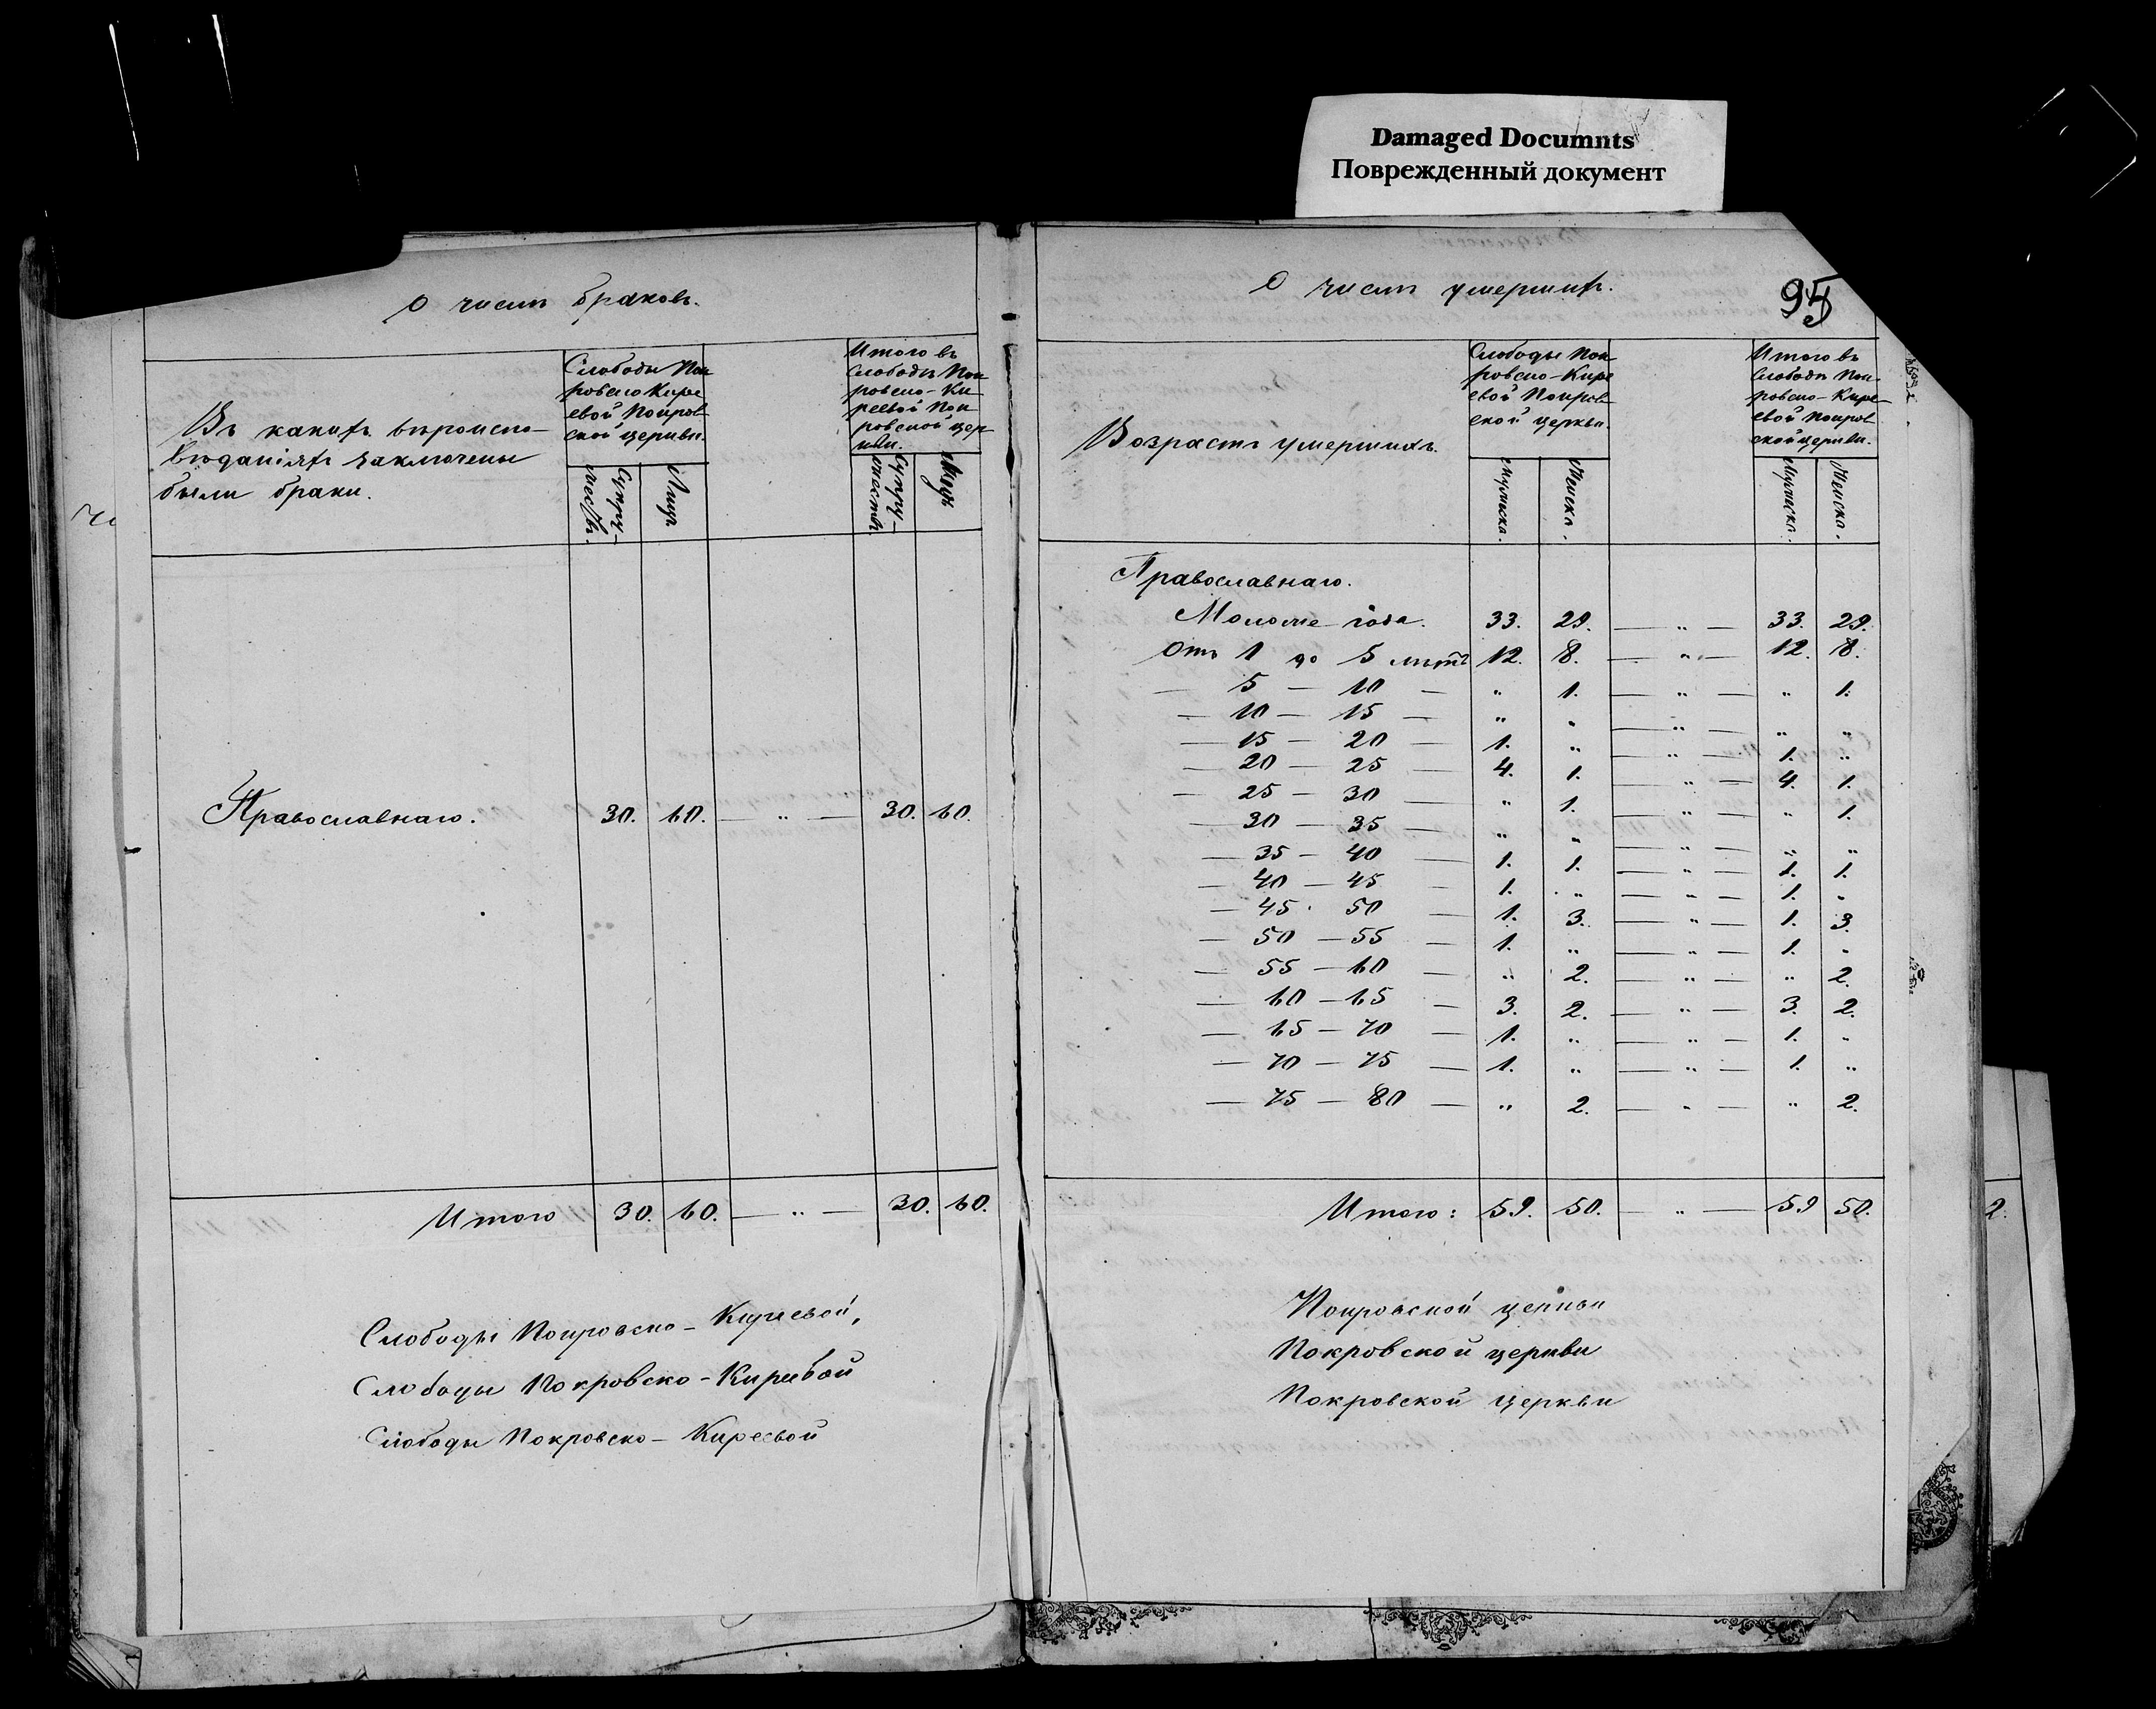 Damaged Documnts
Поврежденный документ
О числѣ браковъ.
Въ какихъ вѣроиспо-
вѣданіяхъ заключены
были браки.
Слободы Пок
ровско Кире
евой Покров
ской церкви.
Супру-
жествъ.
Лицъ
Итого въ
Слободѣ Пок
ровско-Ки
реевой Пок
ровской цер
кви.
Супру-
жествъ
Лицъ
Православнаго. 30. 60. — „ — 30. 60.
Итого 30. 60. — „ — 30. 60.
Слободы Покровско-Киреевой,
Слободы Покровско-Киреевой
Слободы Покровско-Киреевой
95
О числѣ умершихъ.
Возрастъ умершихъ.
Слободы Пок
ровско-Кире
евой Покров
ской церкви.
Мужска.
Женска.
Итого въ
Слободѣ Пок
ровско-Кире-
евой Покров
ской церкви.
Мужска.
Женска.
Православнаго.
Моложе года. 33. 29. — „ — 33. 29.
Отъ 1 до 5 лѣтъ 12. 8. — „ — 12. 8.
— 5 — 10 — „ 1. — „ — „ 1.
— 10 — 15 — „ „ — „ — „ „
— 15 — 20 — 1. „ — „ — 1. „
— 20 — 25 — 4. 1. — „ — 4. 1.
— 25 — 30 — „ 1. — „ — „ 1.
— 30 — 35 — „ „ — „ — „ „
— 35 — 40 — 1. 1. — „ — 1. 1.
— 40 — 45 — 1. „ — „ — 1. „
— 45 50 — 1. 3. — „ — 1. 3.
— 50 — 55 — 1. „ — „ — 1. „
— 55 — 60 — „ 2. — „ — „ 2.
— 60 — 65 — 3. 2. — „ — 3. 2.
— 65 — 70 — 1. „ — „ — 1. „
— 70 — 75 — 1. „ — „ — 1. „
— 75 — 80 — „ 2. — „ — „ 2.
Итого: 59. 50. — „ — 59 50.
Покровской церкви
Покровской церкви
Покровской церкви
2.